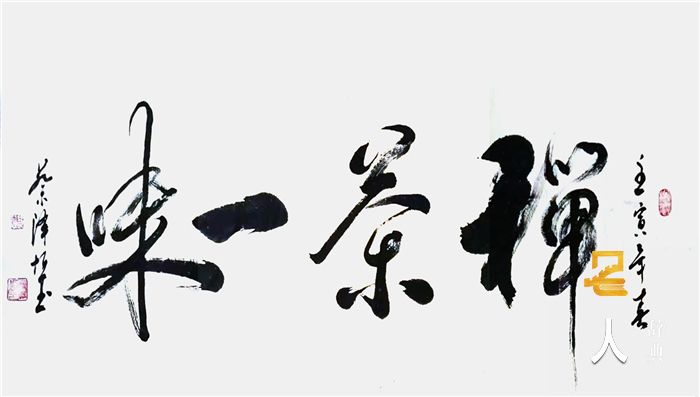 壬寅年春
禪茶一味
蔡
人